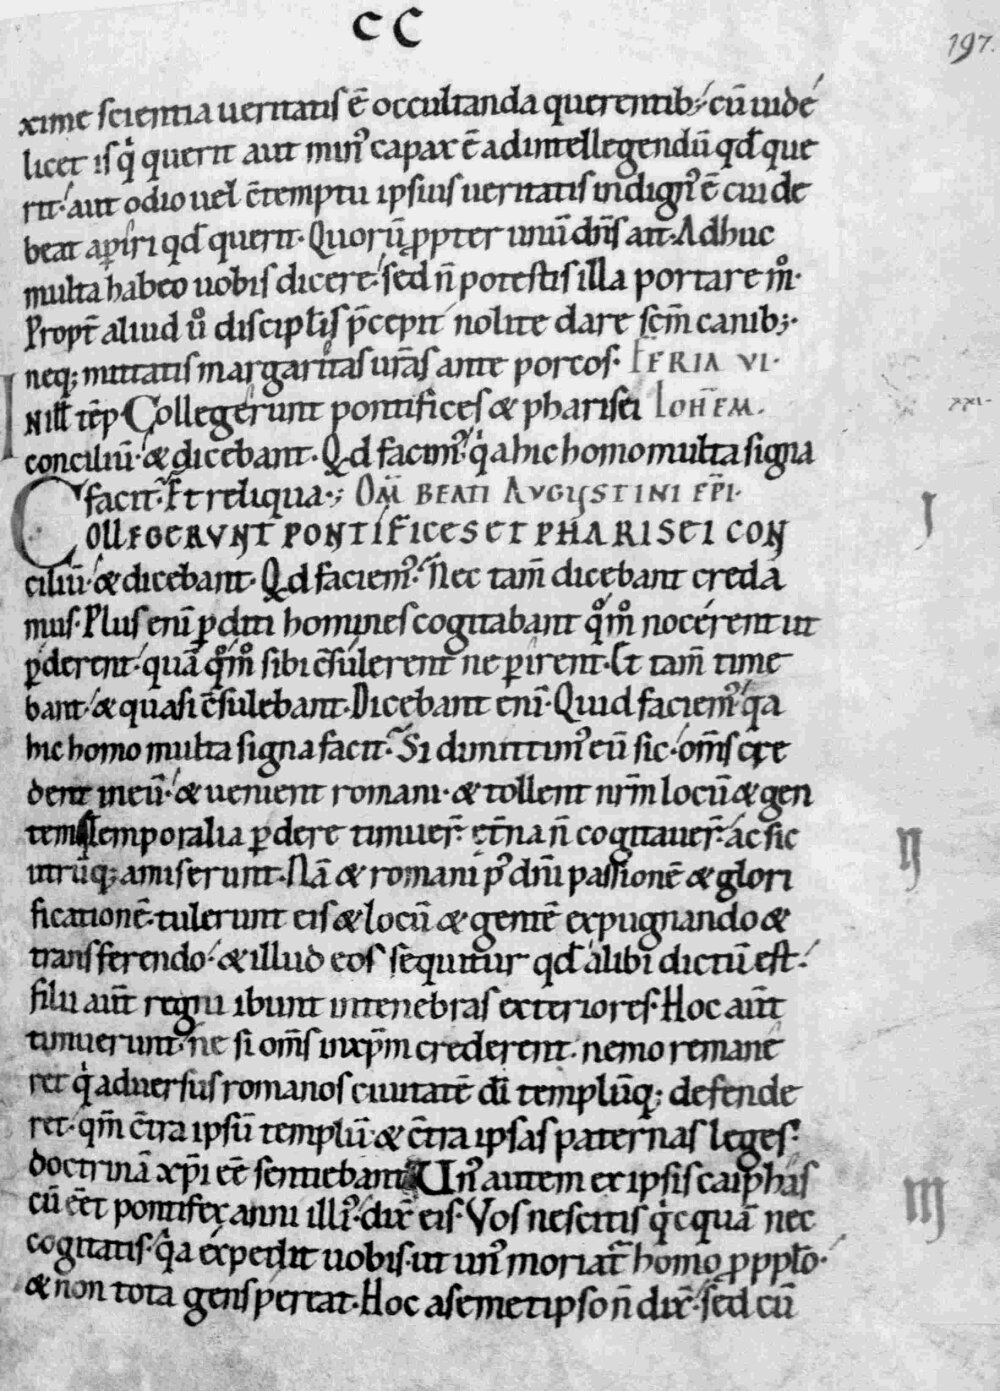 CC
197.
xime scientia ueritatis ē occultanda querentib; cū uide
licet is q̇ querit aut min᾽ capax ē ad intellegendū qđ que
rit· aut odio uel c̄temptu ipsius ueritatis indign᾽ ē cui de
beat aꝑiri qđ querit· Quorū ꝓpter unū dn̄s ait· Adhuc
multa habeo uobis dicere· sed n̄ potestis illa portare m°·
Propt̄ aliud u° discipl̄is p̄cepit nolite dare sc̄m canib;·
neq; mittatis margaritas ur̄as ante porcos· FERIA VI·
IN ill̄ tēp· Collegerunt pontifices & pharisei IOH̄EM.
xxi·
conciliū· & dicebant· Qd facim᾽ q̇a hic homo multa signa
facit· Et reliqua·; OM̄ BEATI AUGUSTINI EP̄I·
COLLEGERUNT PONTIFICES ET PHARISEI CON
I
ciliū· & dicebant· Qd faciem᾽· Nec tam̄ dicebant creda
mus· Plus eni ꝑditi homines cogitabant q°m° nocerent ut
ꝑderent· quā q°m° sibi c̄sulerent ne ꝑirent· Et tam̄ time
bant· & quasi c̄sulebant· Dicebant eni· Quid faciem᾽ q̇a
hic homo multa signa facit· Si dimittim᾽ eū sic· om̄s cre
dent in eū· & uenient romani· & tollent nr̄m locū & gen
tem· Temporalia ꝑdere timuer̄· et̄na n̄ cogitauer̄· ac sic
II
utrūq; amiserunt· Nā & romani p᾽ dn̄i passionē & glori
ficationē· tulerunt eis & locū & gentē expugnando &
transferendo· & illud eos sequitur qđ alibi dictū est·
filii aūt regni ibunt in tenebras exteriores· Hoc aūt
timuerunt· ne si om̄s in xp̄m crederent· nemo remane
ret q̇ aduersus romanos ciuitatē dī templūq; defende
ret· qm̄ c̄tra ipsū templū· & c̄tra ipsas paternas leges·
doctrinā xp̄i eē sentiebant· Un᾽ autem ex ipsis caiphas
III
cū eēt pontifex anni illi᾽· dix̄ eis· Vos nescitis q̇cquā nec
cogitatis· q̇a expedit uobis· ut un᾽ moriat̄ homo ꝓ ppl̄o·
& non tota gens pereat· Hoc a semetipso n̄ dix̄· sed cū